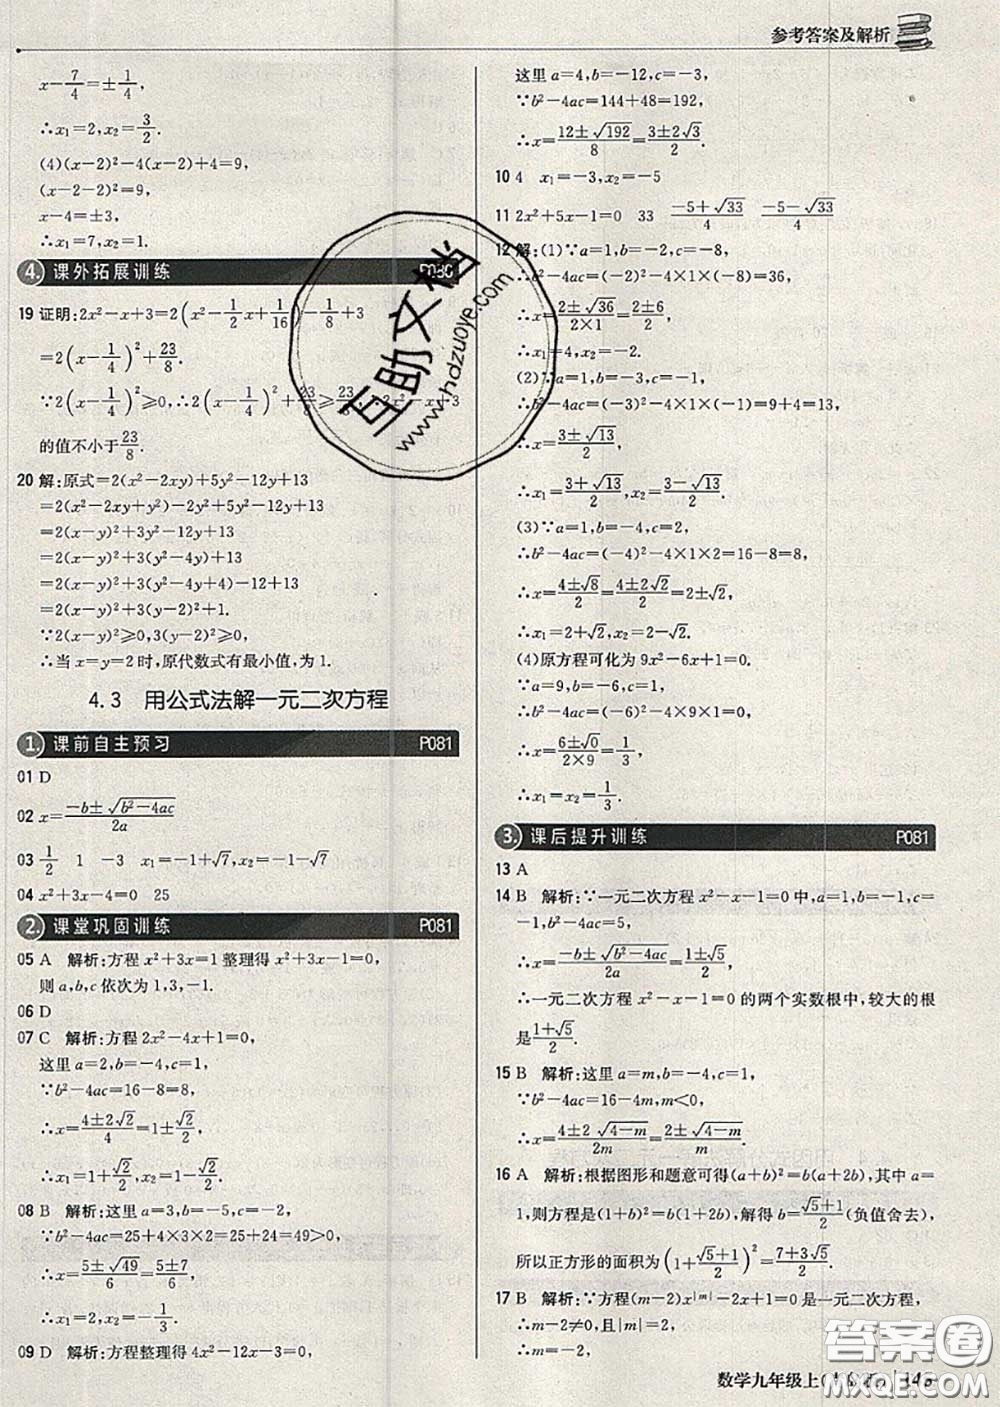 参考答案及解析
x-7/4=±1/4,
∴x₁=2,x₂=3/2.
(4)(x-2)²-4(x-2)+4=9,
(x-2-2)²=9,
x-4=±3,
∴x₁=7,x₂=1.
4. 课外拓展训练 P080
19 证明:2x²-x+3=2(x²-1/2x+1/16)-1/8+3
=2(x-1/4)²+23/8.
∵2(x-1/4)²≥0,∴2(x-1/4)²+23/8≥23/8.
的值不小于23/8.
20 解:原式=2(x²-2xy)+5y²-12y+13
=2(x²-2xy+y²)-2y²+5y²-12y+13
=2(x-y)²+3y²-12y+13
=2(x-y)²+3(y²-4y)+13
=2(x-y)²+3(y²-4y+4)+1
=2(x-y)²+3(y-2)²+1.
∵2(x-y)²≥0,3(y-2)²≥0,
∴当x=y=2时,原代数式有最小值,为1.
4.3 用公式法解一元二次方程
1. 课前自主预习 P081
01 D
02 x=(-b±√(b²-4ac))/2a
03 1/2 1 -3 x₁=-1+√7,x₂=-1-√7
04 x²+3x-4=0 25
2. 课堂巩固训练 P081
05 A 解析:方程x²+3x=1整理得x²+3x-1=0,
则a,b,c依次为1,3,-1.
06 D
07 C 解析:方程2x²-4x+1=0,
这里a=2,b=-4,c=1,
∵b²-4ac=16-8=8,
∴x=(4±2√2)/4=1±√2/2,
∴x₁=1+√2/2,x₂=1-√2/2.
08 B 解析:这里a=3,b=-5,c=-2,
∵b²-4ac=25+4×3×2=25+24=49>0,
∴x=(5±√49)/6=(5±7)/6,
∴x₁=2,x₂=-1/3.
09 D 解析:方程整理得4x²-12x-3=0,
这里a=4,b=-12,c=-3,
∵b²-4ac=144+48=192,
∴x=(12±√192)/8=(3±2√3)/2.
10 4 x₁=-3,x₂=-5
11 2x²+5x-1=0 33 (-5+√33)/4 (-5-√33)/4
12 解:(1)∵a=1,b=-2,c=-8,
∴b²-4ac=(-2)²-4×1×(-8)=36,
∴x=(2±√36)/(2×1)=(2±6)/2,
∴x₁=4,x₂=-2.
(2)∵a=1,b=-3,c=-1,
∴b²-4ac=(-3)²-4×1×(-1)=9+4=13,
∴x=(3±√13)/2,
∴x₁=(3+√13)/2,x₂=(3-√13)/2.
(3)∵a=1,b=-4,c=2,
∴b²-4ac=(-4)²-4×1×2=16-8=8,
∴x=(4±√8)/2=(4±2√2)/2=2±√2,
∴x₁=2+√2,x₂=2-√2.
(4)原方程可化为9x²-6x+1=0.
∵a=9,b=-6,c=1,
∴b²-4ac=(-6)²-4×9×1=0,
∴x=(6±√0)/(2×9)=1/3,
∴x₁=x₂=1/3.
3. 课后提升训练 P081
13 A
14 B 解析:∵一元二次方程x²-x-1=0中,a=1,b=-1,c=
-1,b²-4ac=5,
∴x=(-b±√(b²-4ac))/2a=(1±√5)/2.
∴一元二次方程x²-x-1=0的两个实数根中,较大的根
是(1+√5)/2.
15 B 解析:这里a=m,b=-4,c=1,
∵b²-4ac=16-4m,m<0,
∴x=(4±2√(4-m))/2m=(2±√(4-m))/m.
16 A 解析:根据图形和题意可得(a+b)²=b(a+2b),其中a=
1,则方程是(1+b)²=b(1+2b),解得b=(√5+1)/2(负值舍去),
所以正方形的面积为(1+(√5+1)/2)²=(7+3√5)/2.
17 B 解析:∵方程(m-2)x^|m|-2x+1=0是一元二次方程,
∴m-2≠0,且|m|=2,
∴m=-2.
数学九年级上
互助文档
www.hdzuoye.com
答案圈
MXQE.COM